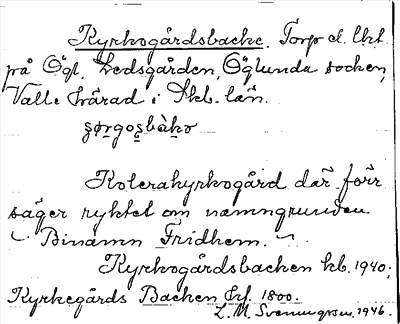 Kyrkogårdsbacke. Torp el. lht
på Ögl. Ledsgården, Öglunda socken,
Valle härad i Skb. län.
Kolerakyrkogård där förr
säger ryktet om namngrunden.
Binamn Fridhem.
Kyrkogårdsbacken kb. 1940;
Kyrkegårds Backen hfl. 1800.
L. M. Svenungsson 1946.